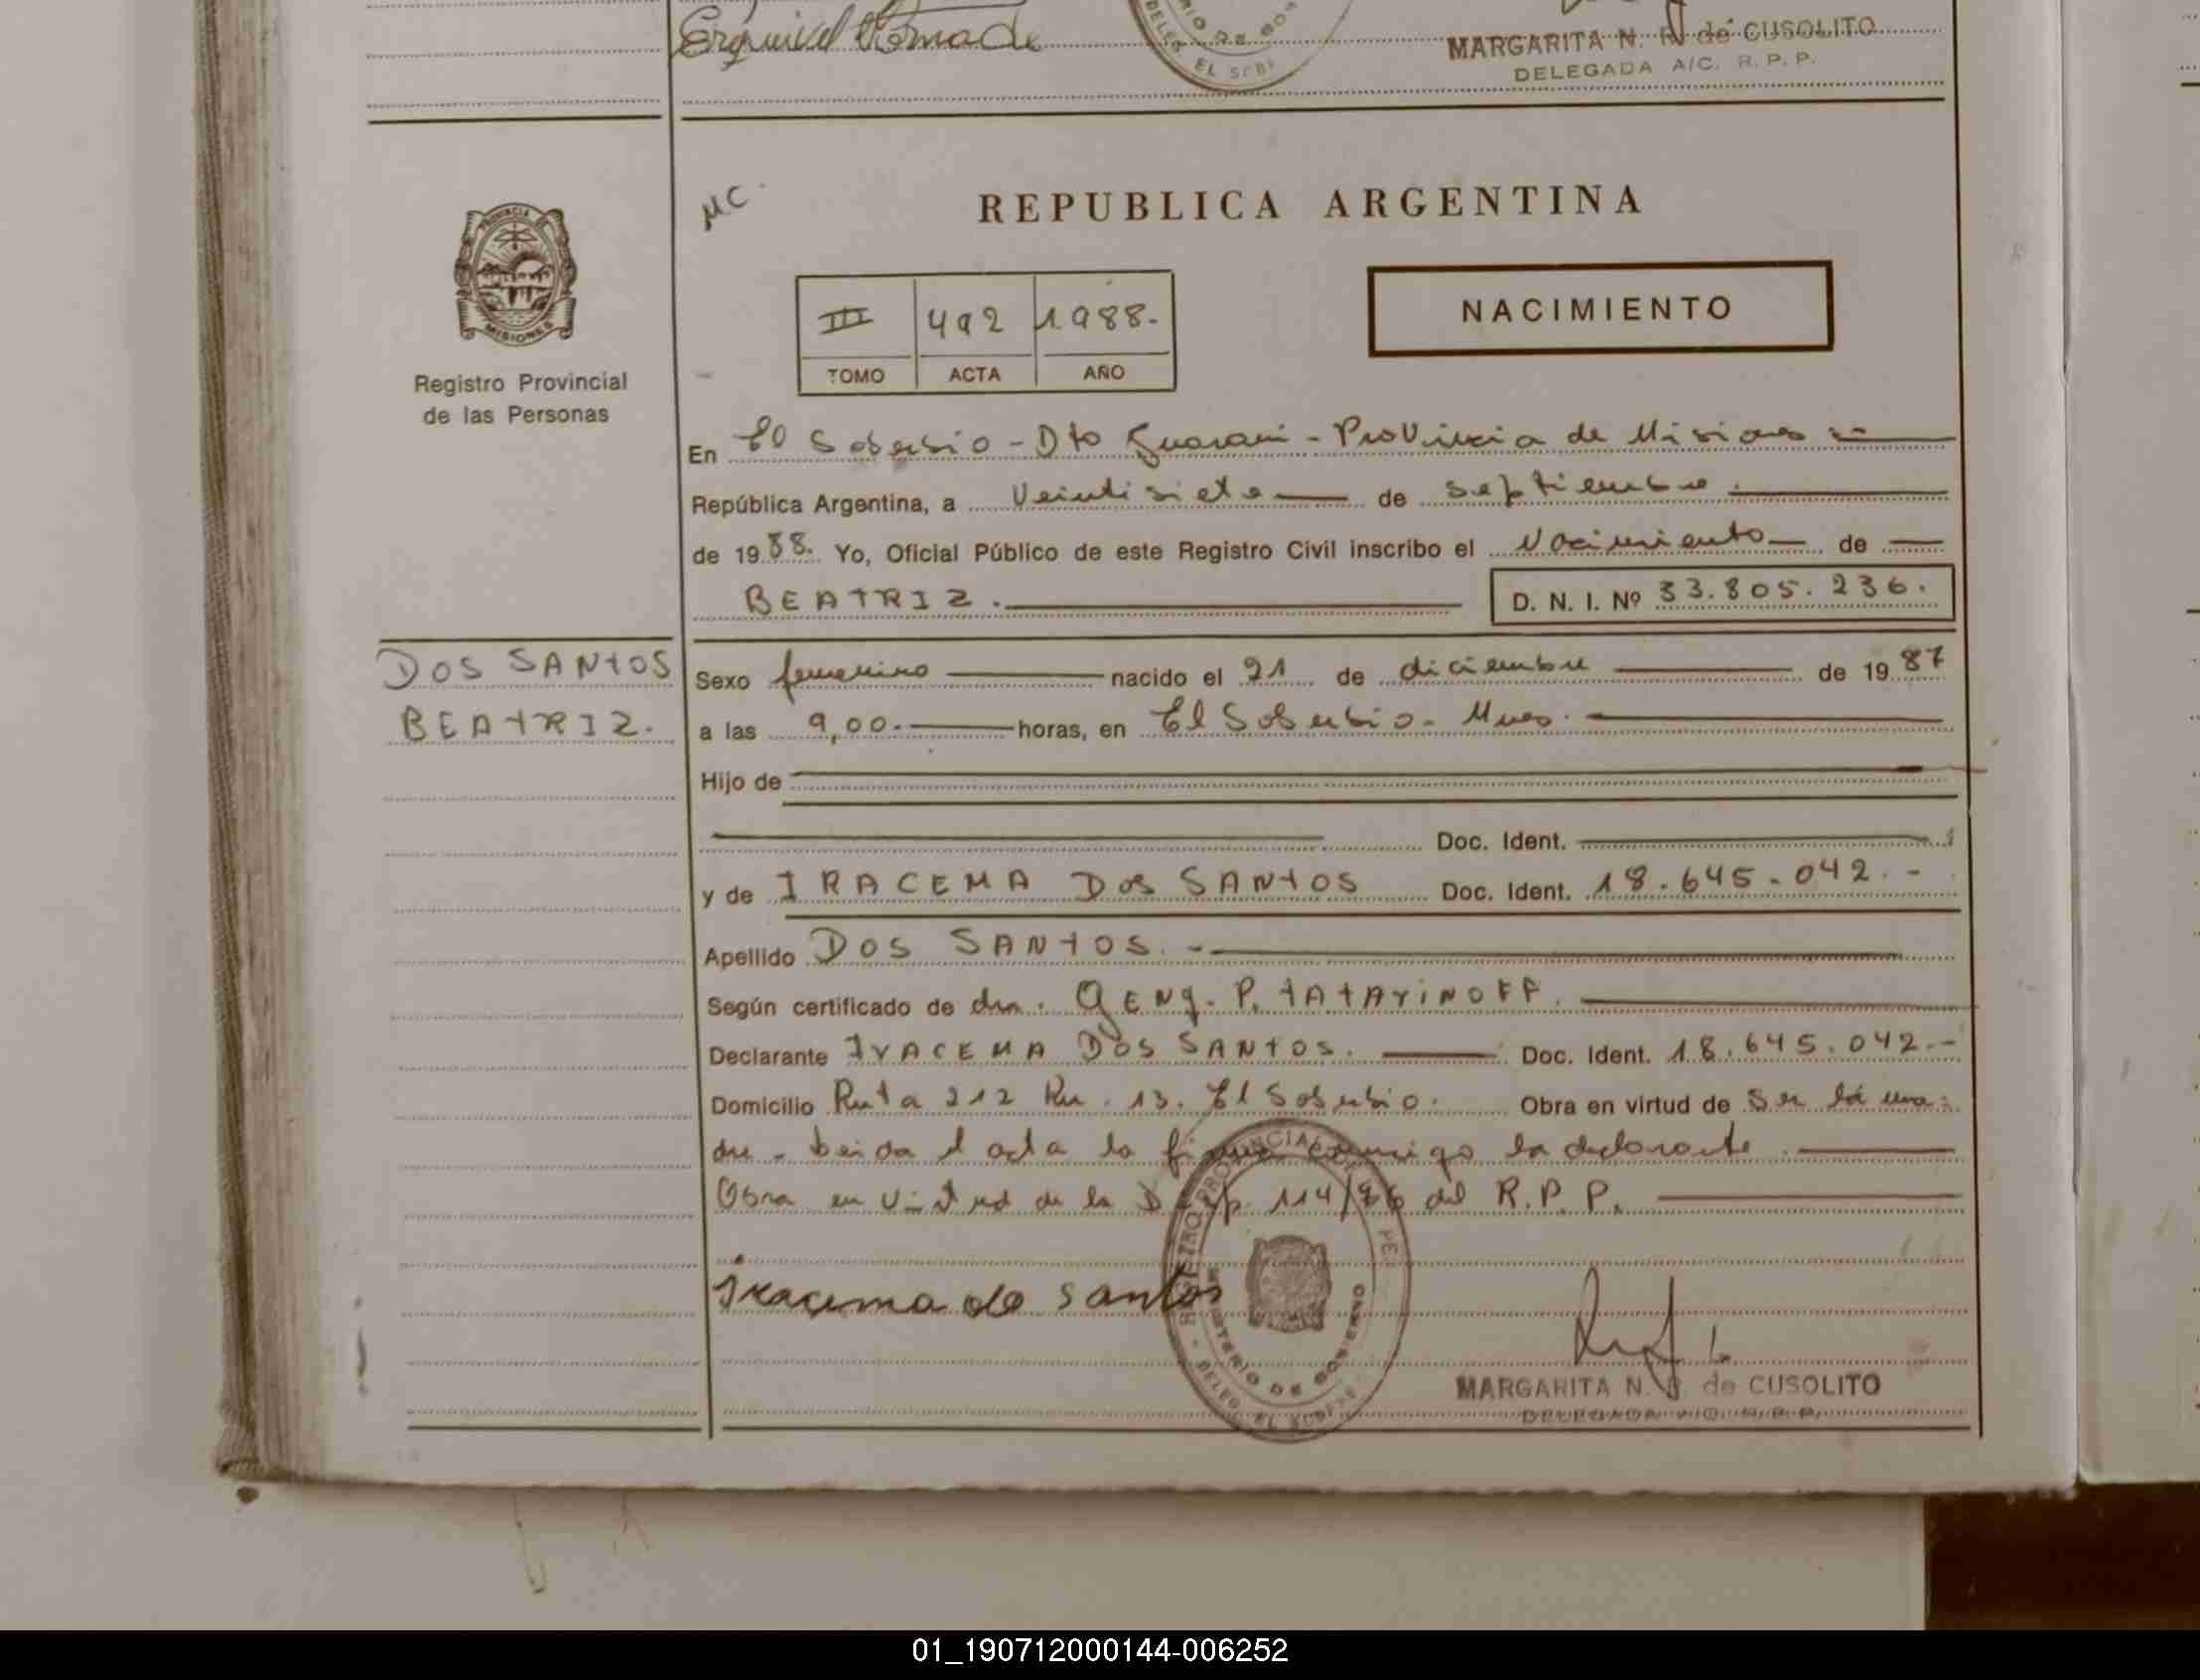 Ezquiel
RIO DE GO
DELEG. EL SOBE
MARGARITA N. R. de CUSOLITO
DELEGADA A/C. R. P. P.
MC
REPUBLICA ARGENTINA
PROVINCIA DE
MISIONES
Registro Provincial
de las Personas
III 492 1988.-
TOMO ACTA AÑO
NACIMIENTO
En El Soberbio - Dto Guarani - Provincia de Misiones
República Argentina, a Veintisiete de septiembre.
de 1988. Yo, Oficial Público de este Registro Civil inscribo el Nacimiento de
BEATRIZ. D. N. I. Nº 33.805.236.
DOS SANTOS
BEATRIZ.
Sexo femenino nacido el 21 de diciembre de 1987
a las 9,00.- horas, en El Soberbio. Mnes.
Hijo de
Doc. Ident.
y de IRACEMA DOS SANTOS Doc. Ident. 18.645.042.-
Apellido DOS SANTOS.-
Según certificado de dra. P. TATARINOFF.
Declarante IRACEMA DOS SANTOS. Doc. Ident. 18.645.042.-
Domicilio Ruta 212 Km. 13. El Soberbio. Obra en virtud de Ser la ma-
dre. Leida el acta la firma conmigo la declarante.
Obra en virtud de la Disp. 114/86 del R.P.P.
Iracema do santos
REGISTRO PROVINCIAL DE PE
MINISTERIO DE GOBIERNO
DELEG. EL SOBERB
MARGARITA N. R. de CUSOLITO
DELEGADA A/C. R. P. P.
01_190712000144-006252